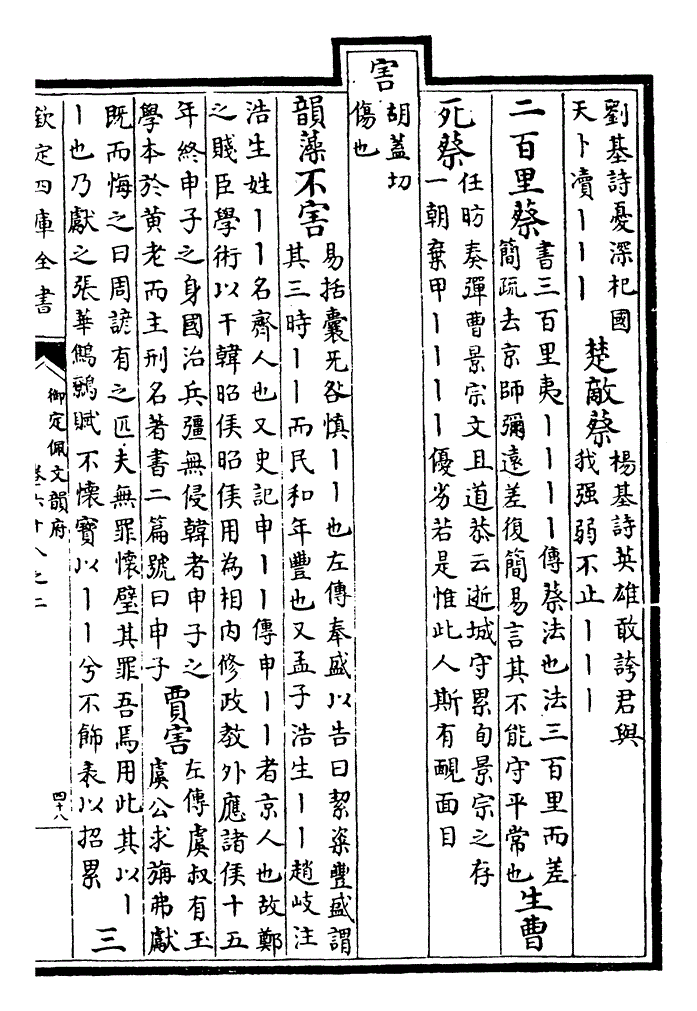 劉基詩憂深杞國
天卜瀆丨丨丨
楚敵蔡
楊基詩英雄敢誇君與
我强弱不止丨丨丨
二百里蔡
書三百里夷丨丨丨丨傳蔡法也法三百里而差
簡疏去京師彌遠差復簡易言其不能守平常也
生曹
死蔡
任昉奏彈曹景宗文且道恭云逝城守累旬景宗之存
一朝棄甲丨丨丨丨優劣若是惟此人斯有靦面目
害
胡蓋切
傷也
韻藻不害
易括囊无咎慎丨丨也左傳奉盛以告曰絜粢豐盛謂
其三時丨丨而民和年豐也又孟子浩生丨丨趙岐注
浩生姓丨丨名齊人也又史記申丨丨傳申丨丨者京人也故鄭
之賤臣學術以干韓昭侯昭侯用為相内修政教外應諸侯十五
年終申子之身國治兵彊無侵韓者申子之
學本於黄老而主刑名著書二篇號曰申子
賈害
左傳虞叔有玉
虞公求旃弗獻
既而悔之曰周諺有之匹夫無罪懷璧其罪吾焉用此其以丨
丨也乃獻之張華鷦鷯賦不懷寶以丨丨兮不飾表以招累
三
欽定四庫全書
御定佩文韻府
卷六十八之二
四十八